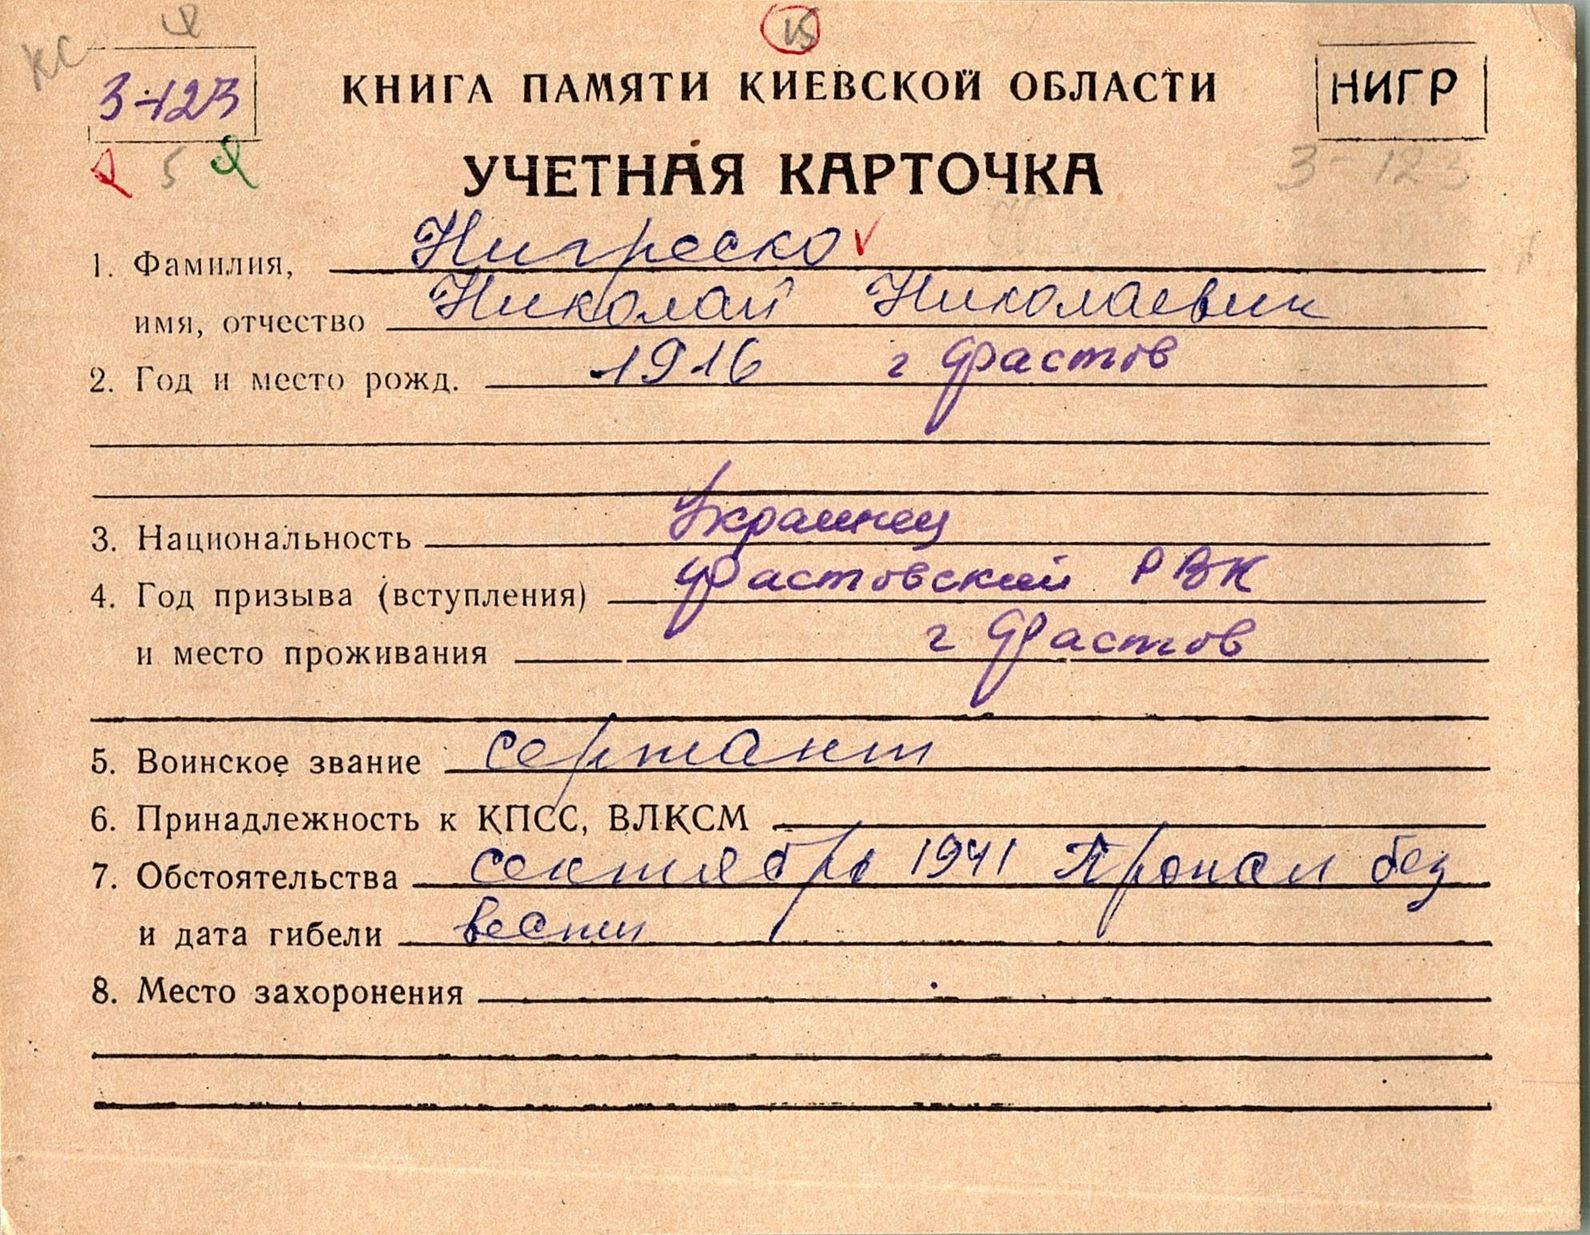 КС
15
3-123
КНИГА ПАМЯТИ КИЕВСКОЙ ОБЛАСТИ
НИГР
5
УЧЕТНАЯ КАРТОЧКА
3-123
1. Фамилия, Нигреско
имя, отчество Николай Николаевич
2. Год и место рожд. 1916 г Фастов
3. Национальность Украинец
4. Год призыва (вступления) Фастовский РВК
и место проживания г Фастов
5. Воинское звание сержант
6. Принадлежность к КПСС, ВЛКСМ
7. Обстоятельства сентябрь 1941 Пропал без
и дата гибели вести
8. Место захоронения